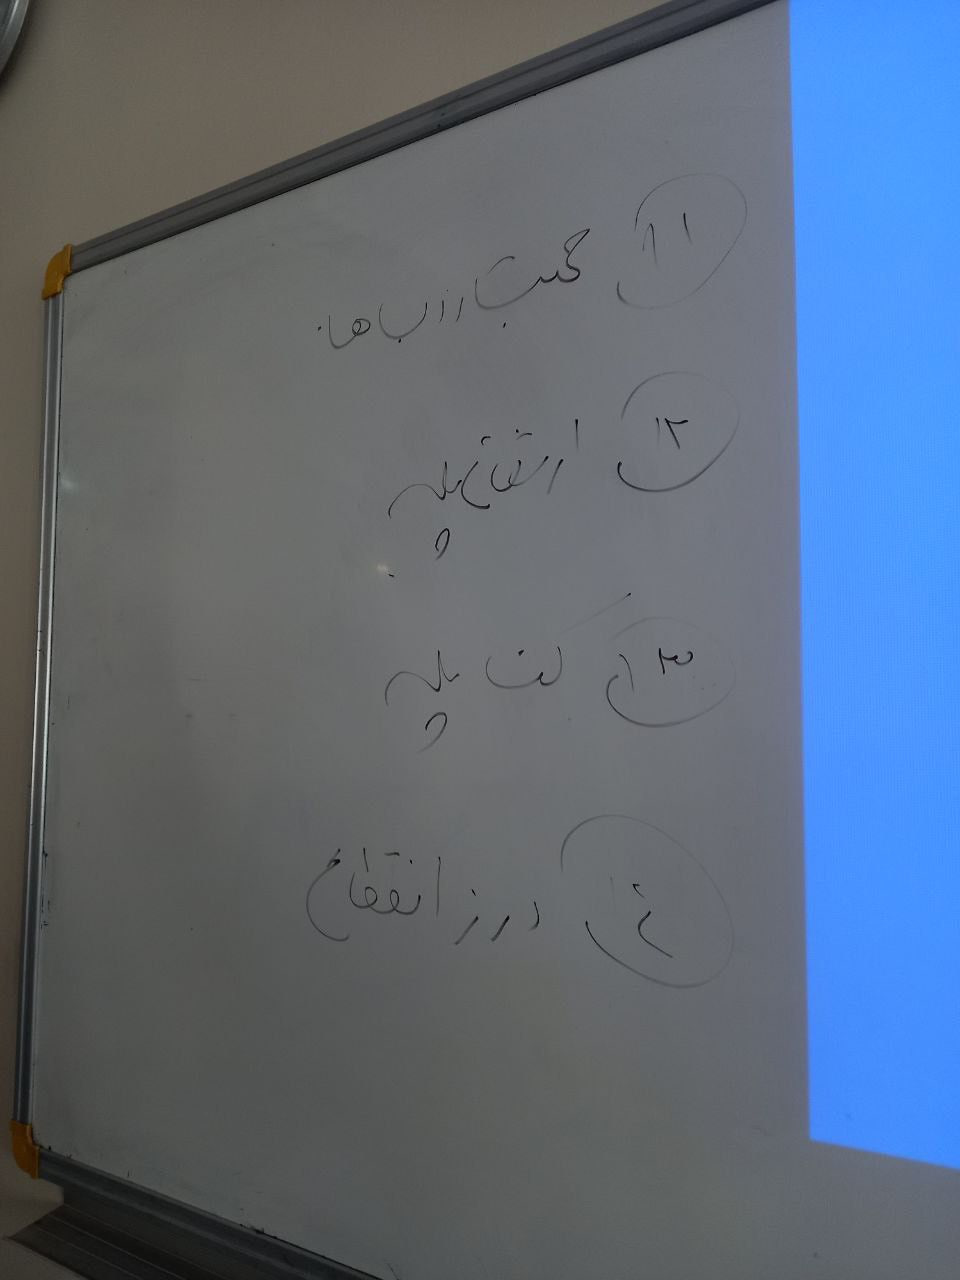 ۱۱ جهت درب ها.
۱۲ ارتفاع پله
۱۳ کف پله
۱۴ درز انقطاع